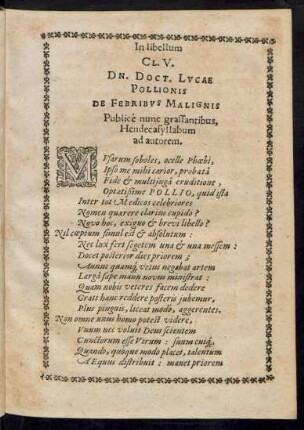 In libellum
CL. V.
DN. DOCT. LVCAE
POLLIONIS
DE FEBRIBVS MALIGNIS
Publicè nunc grassantibus,
Hendecasyllabum
ad autorem.
MVsarum soboles, ocelle Phœbi,
Ipso me mihi carior, probatâ
Fide & multijugâ eruditione,
Optatissime POLLIO, quid ista
Inter tot Medicos celebriores
Nomen quærere clarius cupido?
Novo hoc, exiguo & brevi libello?
Nil cœptum simul est & absolutum:
Nec lux fert segetem una & una messem:
Docet posterior dies priorem;
Annus quamq́, vetus negabat artem
Largâ sæpe manu novus ministrat:
Quam nobis veteres facem dedere
Grati hanc reddere posteris jubemur,
Plus pinguis, liceat modò, aggerentes.
Non omne unus homo potest videre,
Vnum nec voluit Deus scientem
Cunctorum esse Virum: suum cuiq́,
Quando, quoque modo placet, talentum
Æquus distribuit: manet priorem